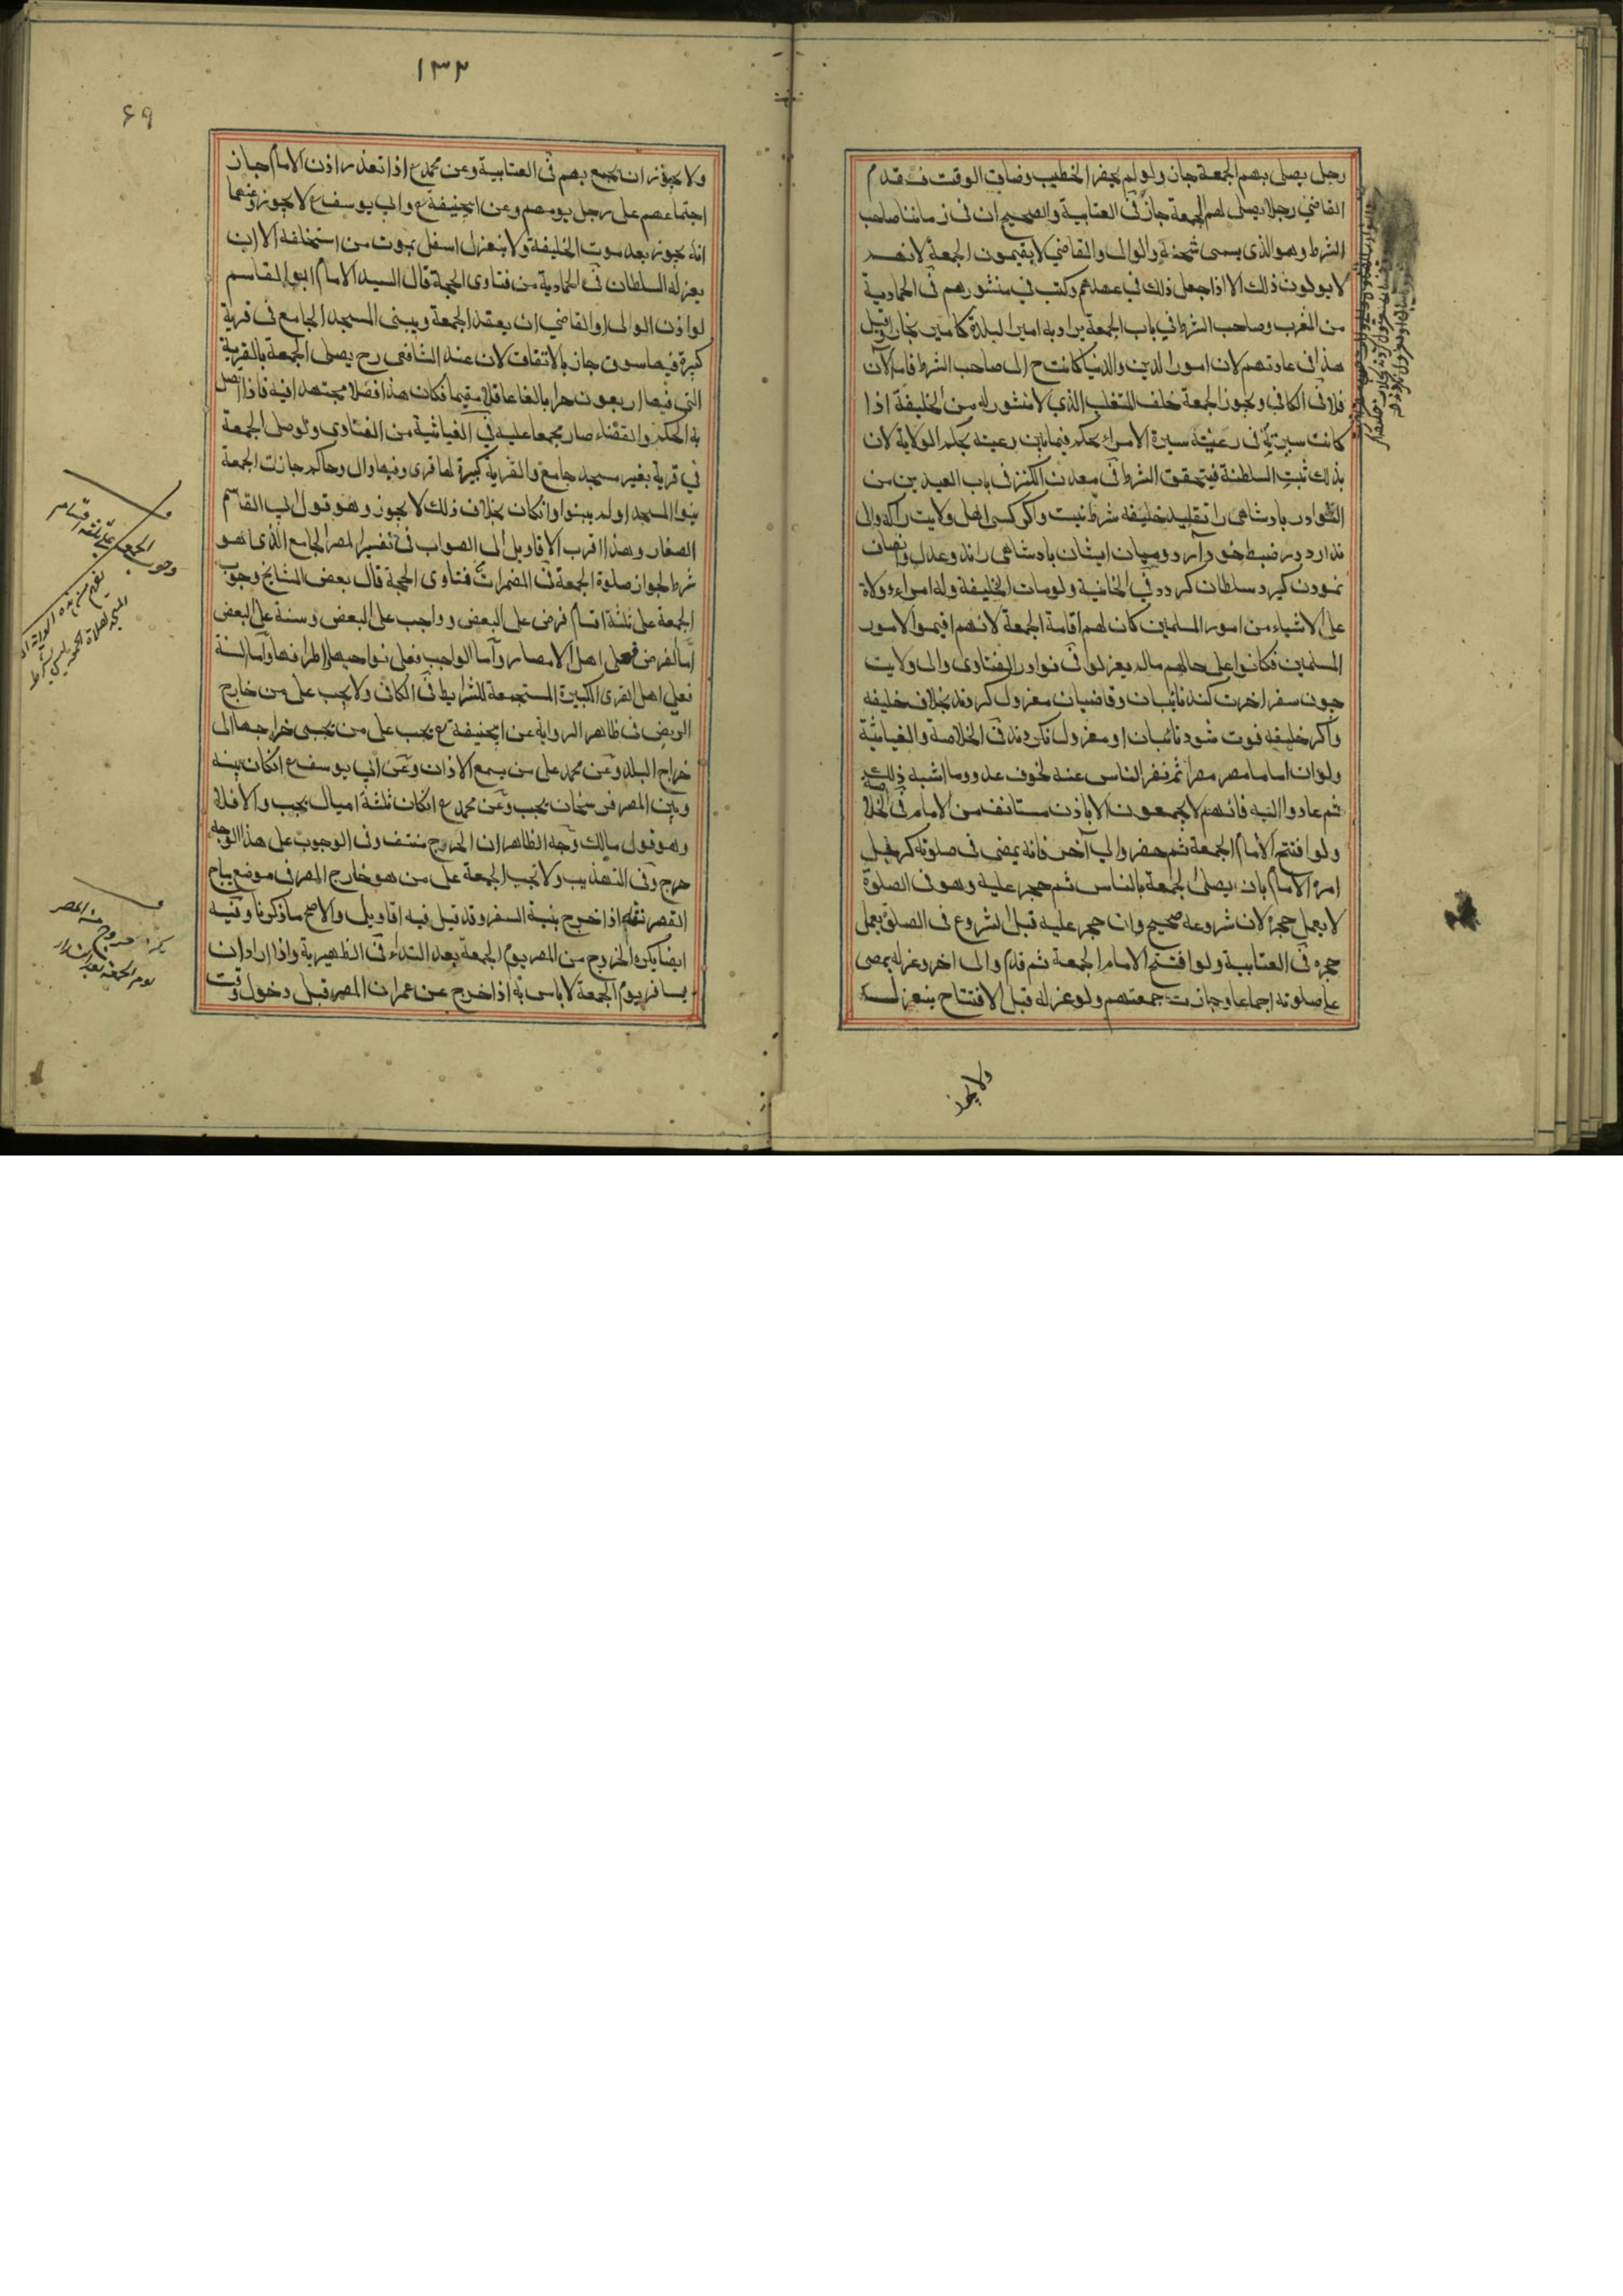 رجل يصلى بهم الجمعة جاز ولو لم يحضر الخطيب وضاق الوقت فقدم
القاضي رجلا يصلى لهم الجمعة جاز فى العتابية والصحيح ان فى زماننا صاحب
الشرط وهو الذى يسمى شحنة والوالى والقاضي لا يقيمون الجمعة لانهم
لا يولون ذلك الا اذا جعل ذلك في عهدهم وكتب في منشورهم فى الحمادية
من المغرب وصاحب الشرط في باب الجمعة يراد به امير البلدة كامير بخارا وقيل
هذا فى عادتهم لان امور الدين والدنيا كانت ح الى صاحب الشرط فاما الآن
فلا فى الكافي ويجوز الجمعة خلف المتغلب الذي لا منشور له من الخليفة اذا
كانت سيرته فى رعيته سيرة الامراء يحكم فيما بين رعيته بحكم الولاية لان
بذلك تثبت السلطنة فيتحقق الشرط فى معدن الكنز فى باب العيدين من
النوادر بادشاهى را تقليد خليفه شرط نيست واكر كسى اهل ولايت راكه والى
ندارد در ضبط خود آرد و ميان ايشان بادشاهى راند وعدل وانصاف
نمودن كيرد سلطان كردد في الخانية ولو مات الخليفة وله امراء وولاة
على الاشياء من امور المسلمين كان لهم اقامة الجمعة لانهم اقيموا لامور
المسلمين فكانوا على حالهم مالم يعزلوا فى نوادر الفتاوى والى ولايت
چون سفر اخرت كند نائبان وقاضيان معزول كردند بخلاف خليفه
واكر خليفه فوت شود نائبان او معزول نكردند فى الخلاصة والغياثية
ولو ان اماما مصر مصرا ثم نفر الناس عنه لخوف عدو وما اشبه ذلك
ثم عادوا اليه فانهم لا يجمعون الا باذن مستانف من الامام فى الخلاصة
ولو افتتح الامام الجمعة ثم حضر والي آخر فانه يمضى فى صلوته كرجل
امره الامام بان يصلى الجمعة بالناس ثم حجر عليه وهو فى الصلوة
لا يعمل حجره لان شروعه صحيح وان حجر عليه قبل الشروع فى الصلوة يعمل
حجره فى العتابية ولو افتتح الامام الجمعة ثم قدم والى اخر وعزله يمضى
على صلوته اجماعا وجازت جمعتهم ولو عزله قبل الافتتاح ينعزل
ولا يجوز
١٣٢
٦٩
ولا يجوز ان يجمع بهم فى العتابية وعن محمد ع اذا تعذر اذن الامام جاز
اجتماعهم على رجل يومهم وعن ابيحنيفة ع وابى يوسف ع لا يجوز وعنهما
انه يجوز بعد موت الخليفة ولا ينعزل اسفل بموت من استخلفه الا ان
يعزله السلطان فى الحمادية من فتاوى الحجة قال السيد الامام ابو القاسم
لو اذن الوالى او القاضي ان يعقد الجمعة ويبنى المسجد الجامع فى قرية
كبيرة فيها سوق جاز بالاتفاق لان عند الشافعى رح يصلى الجمعة بالقرية
التى فيها اربعون حرا بالغا عاقلا مقيما فكان هذا فصلا مجتهدا فيه فاذا اتصل
به الحكم والقضاء صار مجمعا عليه في الغياثية من الفتاوى ولو صلى الجمعة
في قرية بغير مسجد جامع والقرية كبيرة لها قرى وفيها وال وحاكم جازت الجمعة
بنوا المسجد او لم يبنوا وان كان بخلاف ذلك لا يجوز وهو قول ابى القاسم
الصفار وهذا اقرب الاقاويل الى الصواب فى تفسير المصر الجامع الذى هو
شرط لجواز صلوة الجمعة فى المضمرات فتاوى الحجة قال بعض المشايخ وجوب
الجمعة على ثلثة اقسام فرض على البعض وواجب على البعض وسنة على البعض
اما الفرض فعلى اهل الامصار واما الواجب فعلى نواحيها واطرافها واما السنة
فعلى اهل القرى الكبيرة المستجمعة للشرايط فى الكافى ولا يجب على من خارج
الربض فى ظاهر الرواية عن ابيحنيفة ع يجب على من يجبى خراجها الى
خراج البلد وعن محمد على من يسمع الاذان وعن ابي يوسف ع ان كان بينه
وبين المصر فرسخان يجب وعن محمد ع ان كان ثلثة اميال يجب والا فلا
وهو قول مالك وجه الظاهر ان الحرج منتف وفى الوجوب على هذا الوجه
حرج وفى التهذيب ولا تجب الجمعة على من هو خارج المصر فى موضع يباح
القصر فيه اذا خرج بنية السفر وقد قيل فيه اقاويل والاصح ما ذكرنا وفيه
ايضا يكره الخروج من المصر يوم الجمعة بعد النداء فى الظهيرية واذا اراد ان
يسافر يوم الجمعة لا باس به اذا خرج عن عمران المصر قبل دخول وقت
وجوب الجمعة على ثلثة اقسام
يكره خروج من المصر
يوم الجمعة بعد النداء